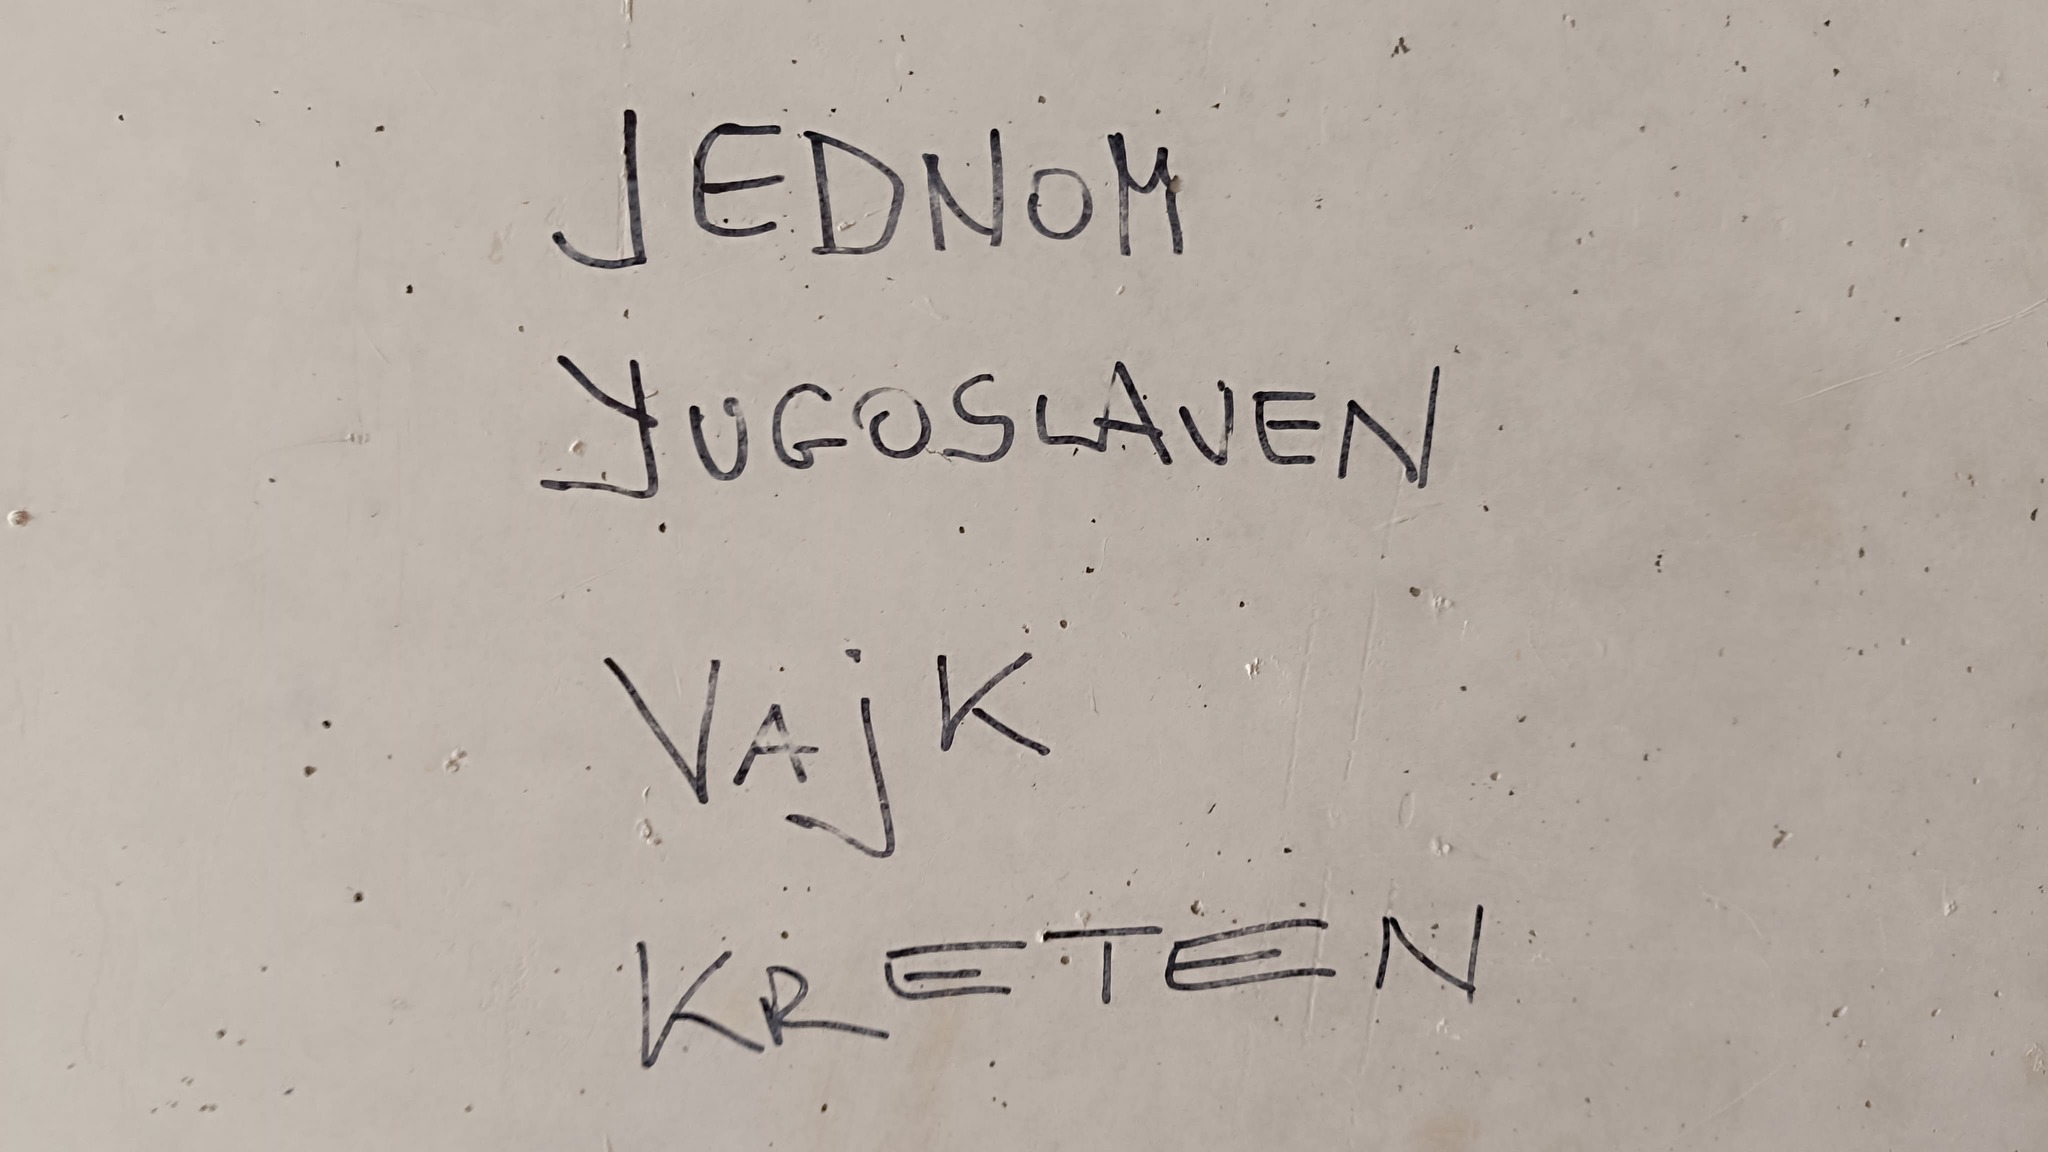 JEDNOM
YUGOSLAVEN
VAjK
KRETEN